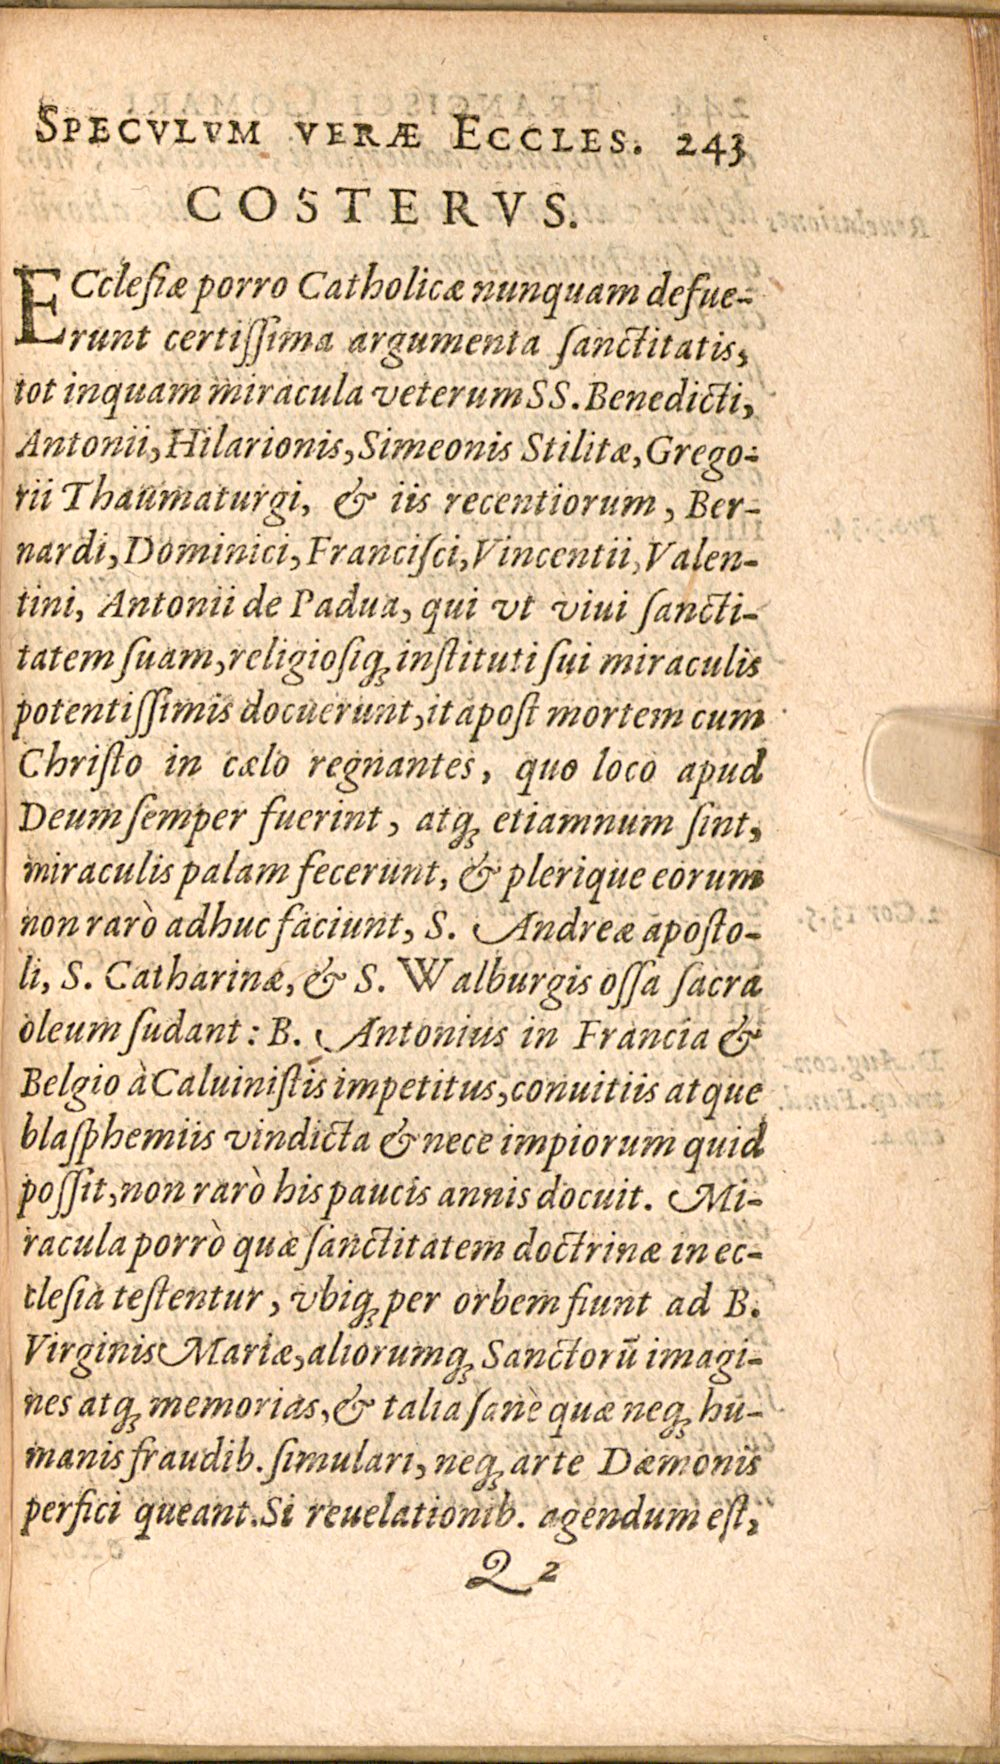 SPECVLVM VERÆ ECCLES. 243
COSTERVS.
ECclesiæ porro Catholicæ nunquam defue-
runt certissima argumenta sanctitatis,
tot inquam miracula veterum SS. Benedicti,
Antonii, Hilarionis, Simeonis Stilitæ, Grego-
rii Thaumaturgi, & iis recentiorum, Ber-
nardi, Dominici, Francisci, Vincentii, Valen-
tini, Antonii de Padua, qui vt viui sancti-
tatem suam, religiosiq; instituti sui miraculis
potentissimis docuerunt, ita post mortem cum
Christo in cælo regnantes, quo loco apud
Deum semper fuerint, atq; etiamnum sint,
miraculis palam fecerunt, & plerique eorum
non rarò adhuc faciunt, S. Andreæ aposto-
li, S. Catharinæ, & S. Walburgis ossa sacra
oleum sudant: B. Antonius in Francia &
Belgio à Caluinistis impetitus, conuitiis atque
blasphemiis vindicta & nece impiorum quid
possit, non rarò his paucis annis docuit. Mi-
racula porrò quæ sanctitatem doctrinæ in ec-
clesia testentur, vbiq; per orbem fiunt ad B.
Virginis Mariæ, aliorumq; Sanctorũ imagi-
nes atq; memorias, & talia sanè quæ neq; hu-
manis fraudib. simulari, neq; arte Dæmonis
perfici queant. Si reuelationib. agendum est,
Q 2